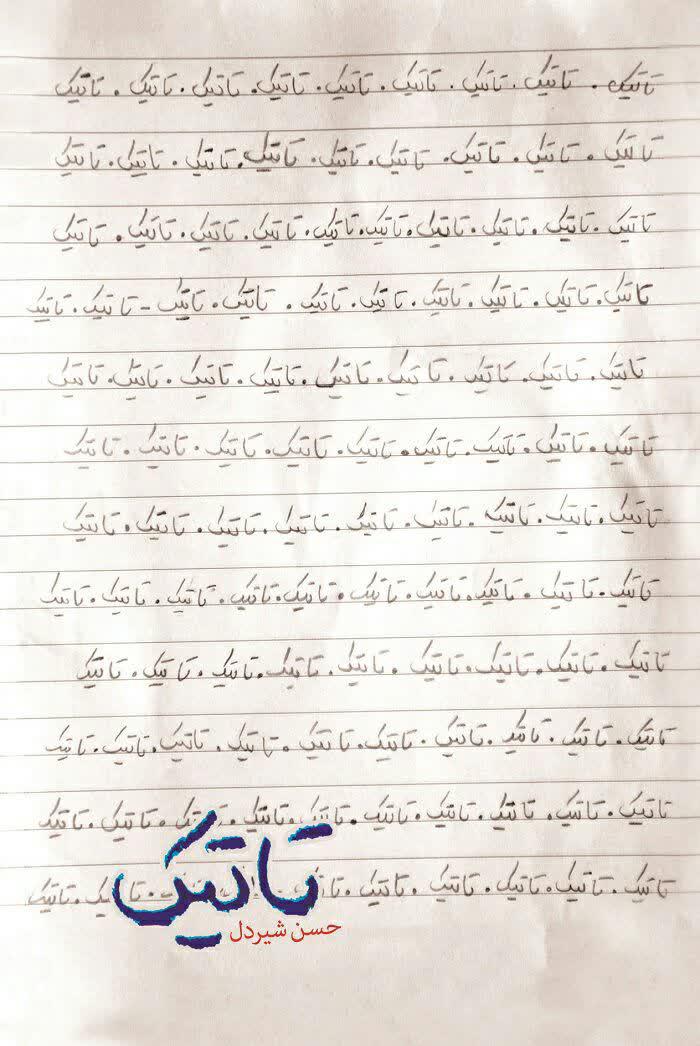 تاتیک . تاتیک . تاتیک . تاتیک . تاتیک . تاتیک . تاتیک . تاتیک . تاتیک
تاتیک . تاتیک . تاتیک . تاتیک . تاتیک . تاتیک . تاتیک . تاتیک . تاتیک
تاتیک . تاتیک . تاتیک . تاتیک . تاتیک . تاتیک . تاتیک . تاتیک . تاتیک . تاتیک
تاتیک . تاتیک . تاتیک . تاتیک . تاتیک . تاتیک . تاتیک . تاتیک - تاتیک . تاتیک
تاتیک . تاتیک . تاتیک . تاتیک . تاتیک . تاتیک . تاتیک . تاتیک . تاتیک
تاتیک . تاتیک . تاتیک . تاتیک . تاتیک . تاتیک . تاتیک . تاتیک . تاتیک
تاتیک . تاتیک . تاتیک . تاتیک . تاتیک . تاتیک . تاتیک . تاتیک . تاتیک
تاتیک . تاتیک . تاتیک . تاتیک . تاتیک . تاتیک . تاتیک . تاتیک . تاتیک . تاتیک
تاتیک . تاتیک . تاتیک . تاتیک . تاتیک . تاتیک . تاتیک . تاتیک . تاتیک
تاتیک . تاتیک . تاتیک . تاتیک . تاتیک . تاتیک . تاتیک . تاتیک . تاتیک . تاتیک
تاتیک . تاتیک . تاتیک . تاتیک . تاتیک . تاتیک . تاتیک . تاتیک . تاتیک . تاتیک
تاتیک . تاتیک . تاتیک . تاتیک . تاتیک . تاتیک . تاتیک . تاتیک
تاتیک
حسن شیردل